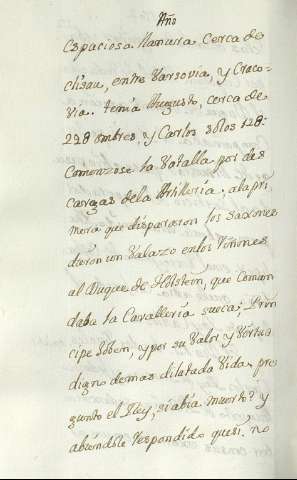 Año
Espaciosa llanura cerca de
Clisau, entre Varsovia, y Craco-
via. tenia Augusto, cerca de
22@ ombres, y Carlos solos 12@:
Comenzose la Vatalla por des
cargas dela Artilleria, ala pri
mera que dispararon los saxones
dieron un Valazo enlos riñones
al Duque de Holstein, que Coman
daba la Cavalleria sueca; Prin
cipe Joben, y por su Valor y Vertud
digno demas dilatada Vida, pre
gunto el Rey, si abia muerto? y
abiendole respondido quesi, no